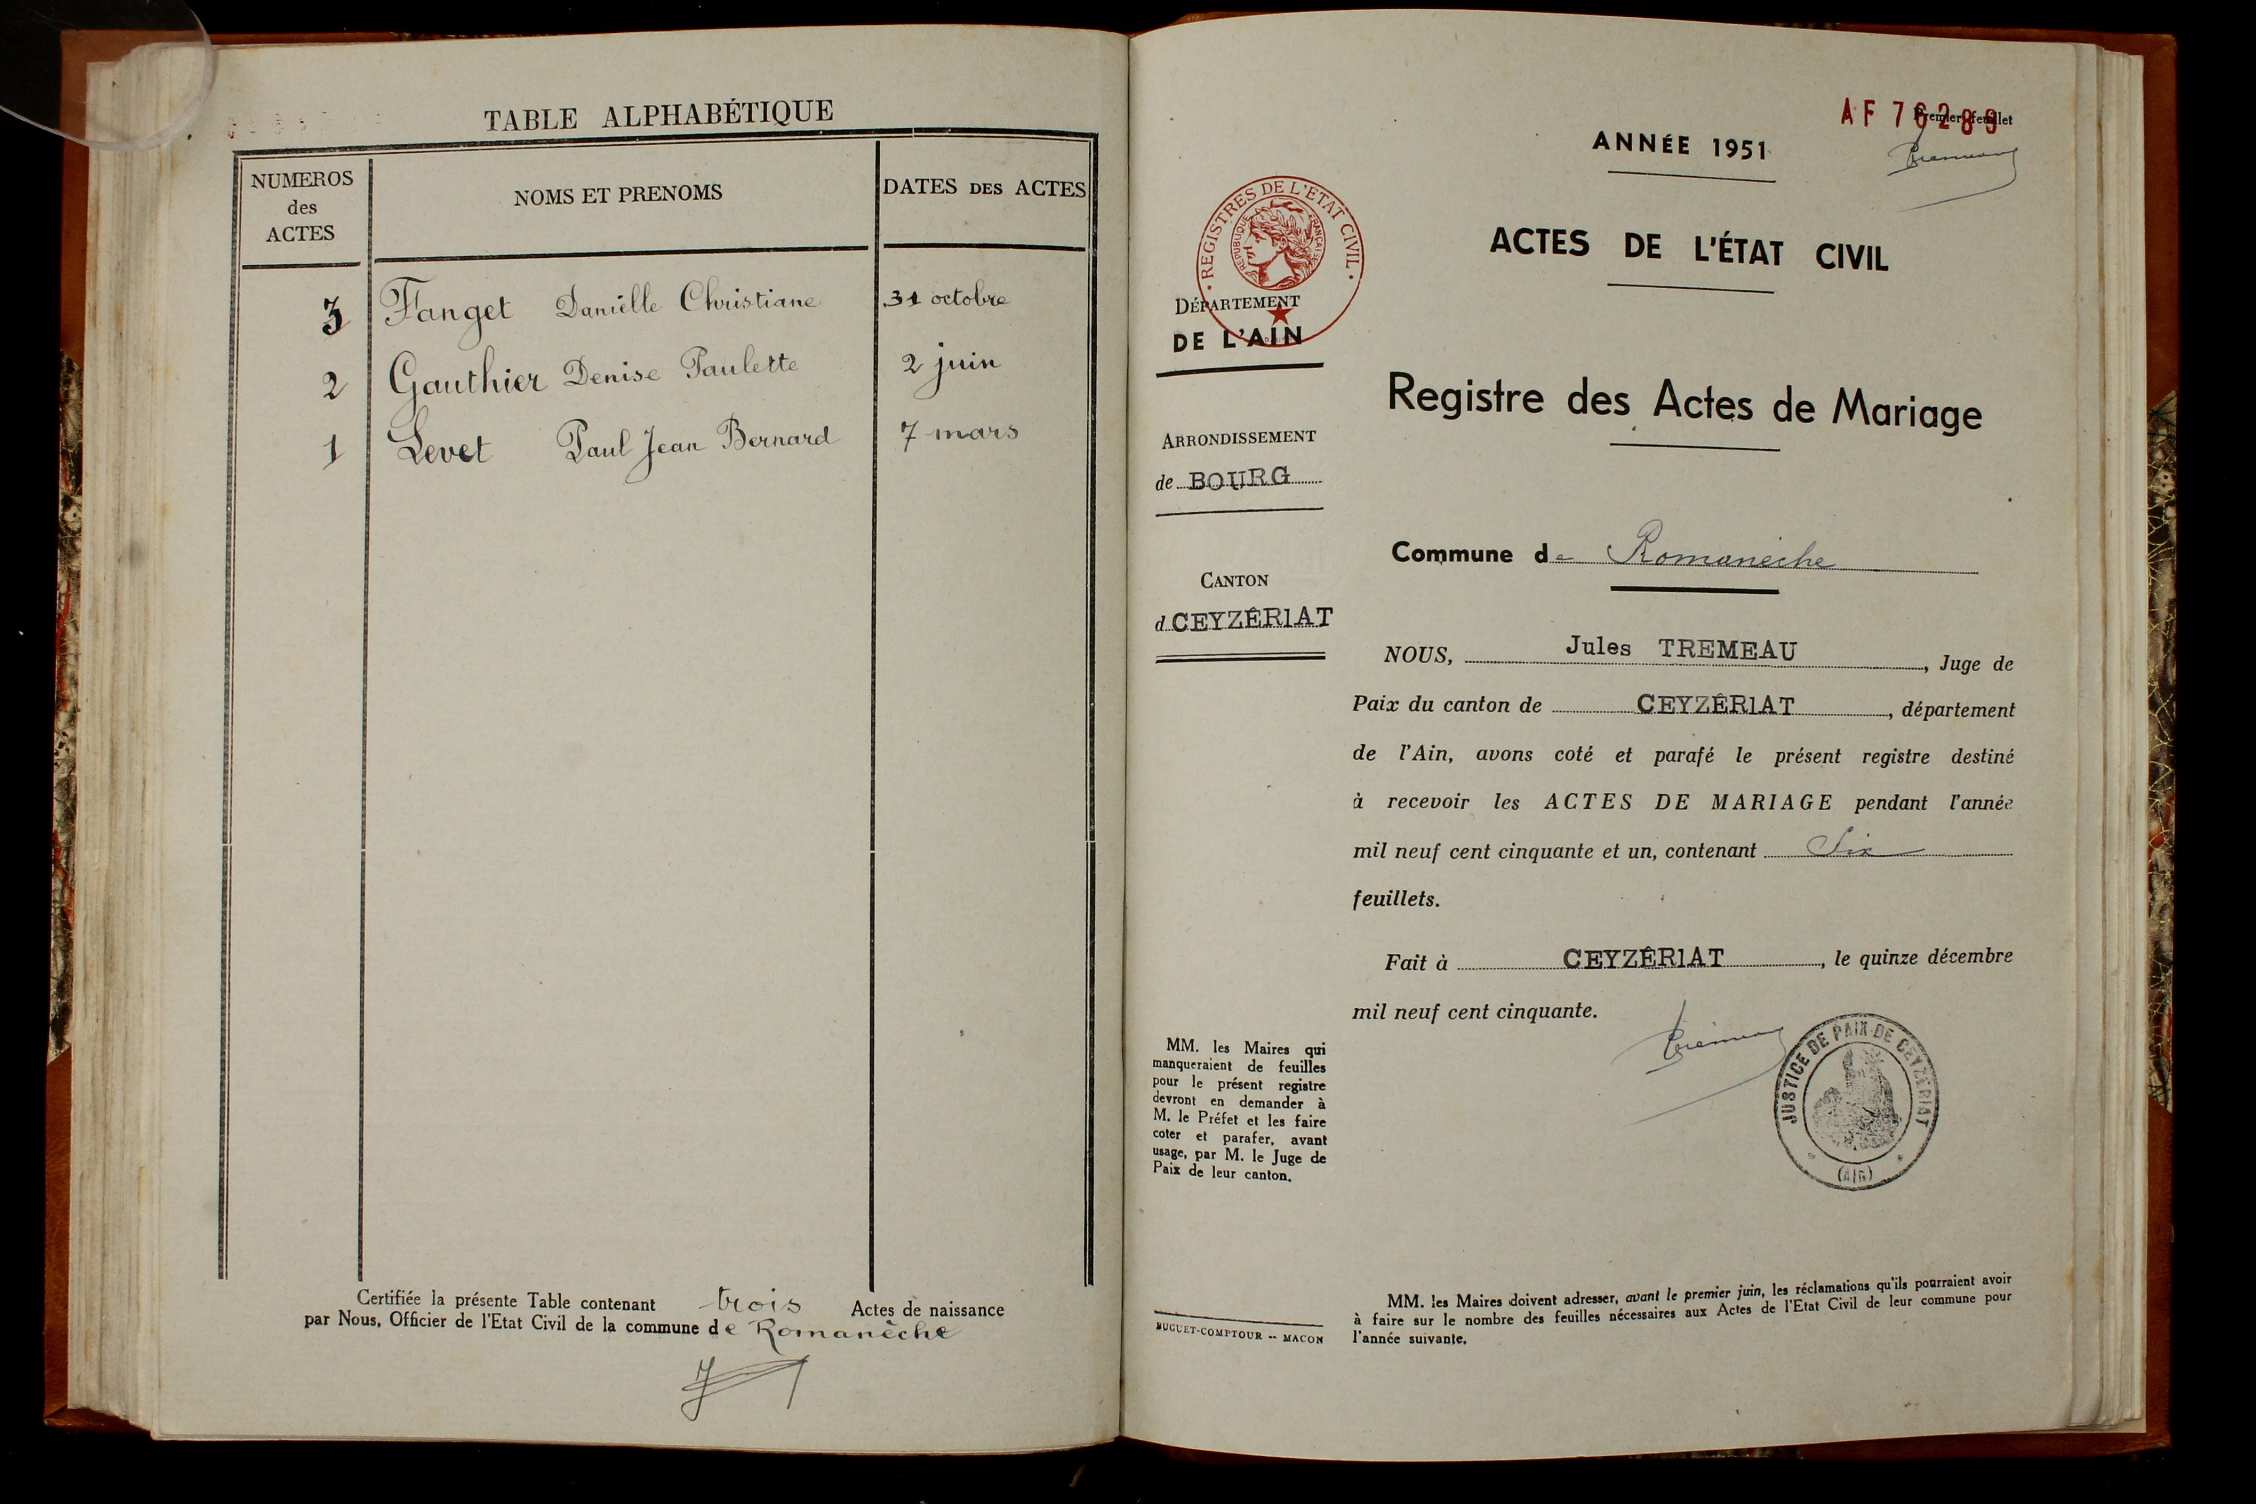 TABLE ALPHABÉTIQUE
NUMEROS
des
ACTES
NOMS ET PRENOMS
DATES DES ACTES
3 Fanget Danièlle Christiane 31 octobre
2 Gauthier Denise Paulette 2 juin
1 Levet Paul Jean Bernard 7 mars
Certifiée la présente Table contenant trois Actes de naissance
par Nous, Officier de l'Etat Civil de la commune de Romanèche
AF 76289
Premier feuillet
ANNÉE 1951
ACTES DE L'ÉTAT CIVIL
• REGISTRES DE L'ETAT CIVIL •
REPUBLIQUE FRANÇAISE
DÉPARTEMENT
DE L'AIN
Registre des Actes de Mariage
ARRONDISSEMENT
de BOURG
CANTON
d CEYZÊR1AT
Commune de Romanèche
NOUS, Jules TREMEAU, Juge de
Paix du canton de CEYZÊR1AT, département
de l'Ain, avons coté et parafé le présent registre destiné
à recevoir les ACTES DE MARIAGE pendant l'année
mil neuf cent cinquante et un, contenant Six
feuillets.
Fait à CEYZÊR1AT, le quinze décembre
mil neuf cent cinquante.
JUSTICE DE PAIX DE CEYZERIAT
(AIN)
MM. les Maires qui
manqueraient de feuilles
pour le présent registre
devront en demander à
M. le Préfet et les faire
coter et parafer, avant
usage, par M. le Juge de
Paix de leur canton.
BUGUET-COMPTOUR -- MACON
MM. les Maires doivent adresser, avant le premier juin, les réclamations qu'ils pourraient avoir
à faire sur le nombre des feuilles nécessaires aux Actes de l'Etat Civil de leur commune pour
l'année suivante.